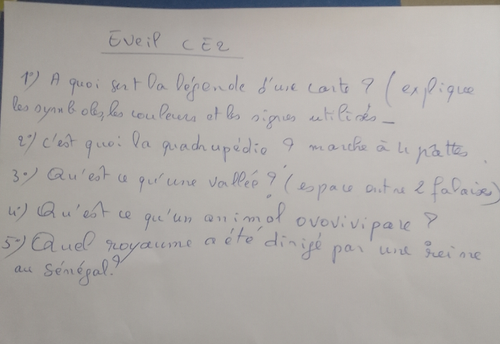 Eveil CE2
1°) A quoi sert la légende d'une carte ? (explique
les symboles, les couleurs et les signes utilisés -
2°) c'est quoi la quadrupédie ? marche à 4 pattes
3°) Qu'est ce qu'une vallée ? (espace entre 2 falaises)
4°) Qu'est ce qu'un animal ovovivipare ?
5°) Quel royaume a été dirigé par une reine
au Sénégal ?